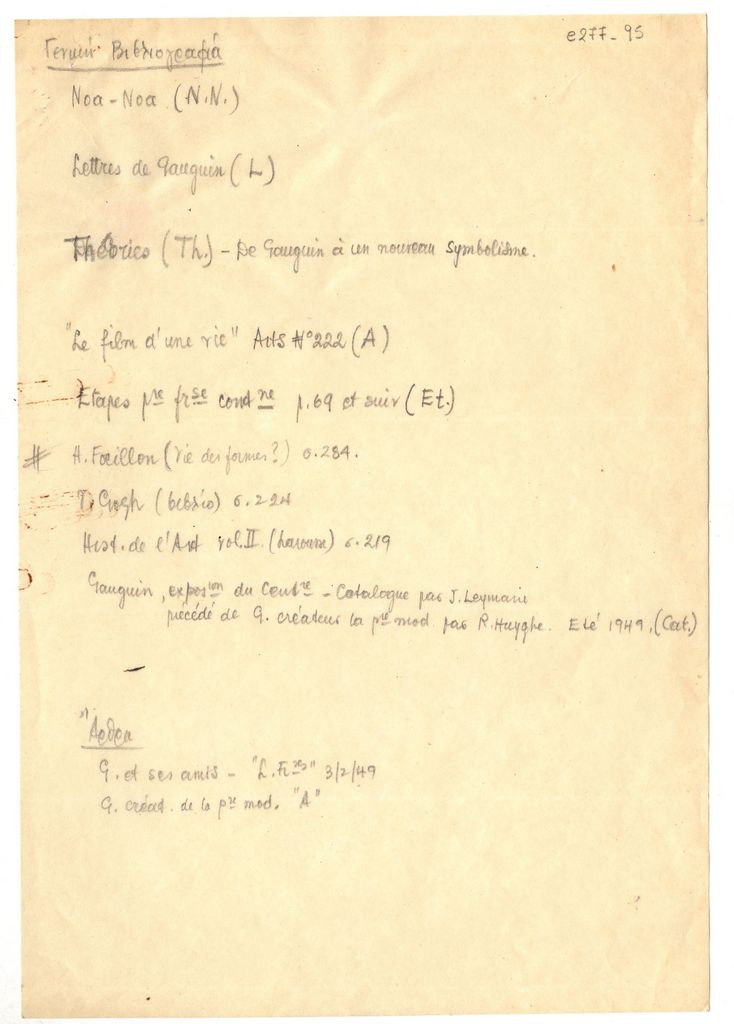 e277-95
Γενική Βιβλιογραφία
Noa-Noa (N.N.)
Lettres de Gauguin (L)
Théories (Th.) - De Gauguin à un nouveau symbolisme.
"Le film d'une vie" Arts N° 222 (A)
Etapes pre frse contne p.69 et suiv (Et.)
# H. Focillon (Vie des formes?) σ.284.
V. Gogh (βιβλίο) σ.224
Hist. de l'Art vol. II. (Larousse) σ.219
Gauguin, exposion du Centre - Catalogue par J. Leymarie
précédé de G. créateur la pre mod. par R. Huyghe. Eté 1949. (Cat.)
Άρθρα
G. et ses amis - "L. Frses" 3/2/49
G. créat. de la pre mod. "A"